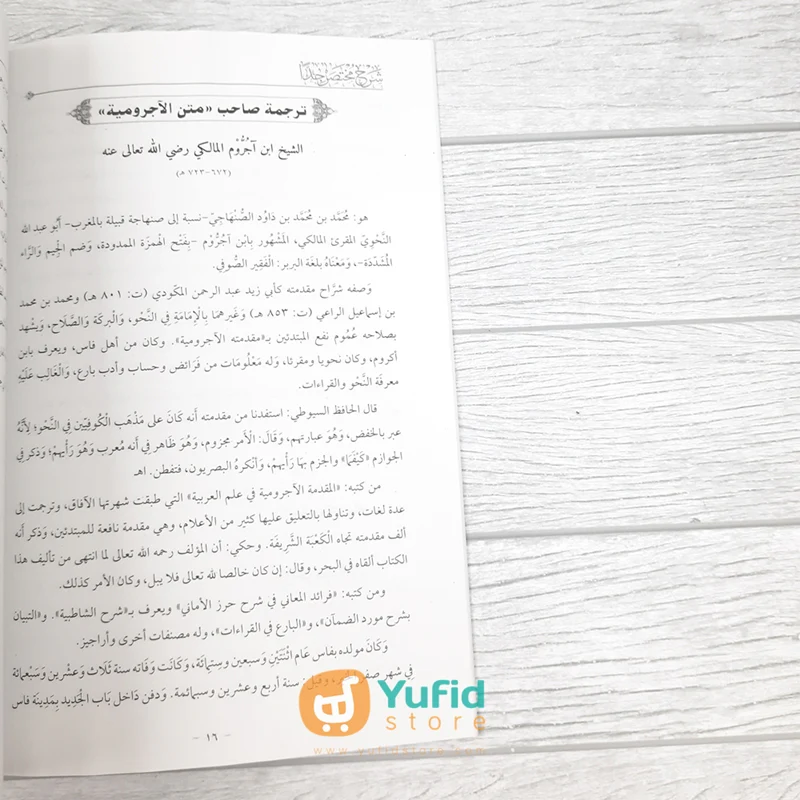 شرح مختصر جدا
ترجمة صاحب «متن الآجرومية»
الشيخ ابن آجُرُّوْم المالكي رضي الله تعالى عنه
(٦٧٢-٧٢٣ هـ)
هو: مُحَمَّد بن مُحَمَّد بن دَاوُد الصُّنْهَاجِيّ-نسبة إلى صنهاجة قبيلة بالمغرب- أَبُو عبد الله
النَّحْوِيّ المقرئ المالكي، المَشْهُور بِابْن آجُرُّوم -بِفَتْح الْهمزَة الممدودة، وَضم الْجِيم وَالرَّاء
الْمُشَدّدَة-، وَمَعْنَاهُ بلغَة البربر: الْفَقِير الصُّوفِي.
وَصفه شرَّاح مقدمته كأبي زيد عبد الرحمن المكودي (ت: ٨٠١ هـ) ومحمد بن محمد
بن إسماعيل الراعي (ت: ٨٥٣ هـ) وَغَيرهمَا بِالْإِمَامَةِ فِي النَّحْو، وَالْبركَة وَالصَّلَاح، وَيشْهد
بصلاحه عُمُوم نفع المبتدئين بـ«مقدمته الآجرومية». وكان من أهل فاس، ويعرف بابن
أكروم، وكان نحويا ومقرئا، وَله مَعْلُومَات من فَرَائض وحساب وأدب بارع، وَالْغَالِب عَلَيْهِ
معرفَة النَّحْو والقراءات.
قال الحافظ السيوطي: استفدنا من مقدمته أَنه كَانَ على مَذْهَب الْكُوفِيّين فِي النَّحْو؛ لِأَنَّهُ
عبر بالخفض، وَهُوَ عبارتهم، وَقَالَ: الْأَمر مجزوم، وَهُوَ ظَاهر فِي أَنه مُعرب وَهُوَ رَأْيهمْ؛ وَذكر فِي
الجوازم «كَيْفَمَا» والجزم بهَا رَأْيهمْ، وَأنْكرهُ البصريون، فتفطن. اهـ
من كتبه: «المقدمة الآجرومية في علم العربية» التي طبقت شهرتها الآفاق، وترجمت إلى
عدة لغات، وتناولها بالتعليق عليها كثير من الأعلام، وهي مقدمة نافعة للمبتدئين، وَذكر أَنه
ألف مقدمته تجاه الْكَعْبَة الشَّرِيفَة. وحكي: أن المؤلف رحمه الله تعالى لما انتهى من تأليف هذا
الكتاب ألقاه في البحر، وقال: إن كان خالصا لله تعالى فلا يبل، وكان الأمر كذلك.
ومن كتبه: «فرائد المعاني في شرح حرز الأماني» ويعرف بـ«شرح الشاطبية». و«التبيان
بشرح مورد الضمآن»، و«البارع في القراءات»، وله مصنفات أخرى وأراجيز.
وَكَانَ مولده بفاس عَام اثْنَتَيْنِ وَسبعين وسِتمِائَة، وَكَانَت وَفَاته سنة ثَلَاث وَعشْرين وَسَبْعمائة
في شهر وقيل: سنة أربع وعشرين وسبعمائة. ودفن دَاخل بَاب الْجَدِيد بِمَدِينَة فاس
- ١٦ -
Yufid
store
www.yufidstore.com